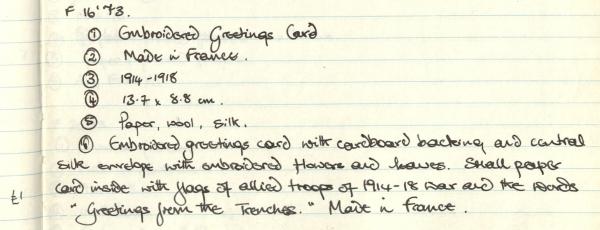 F 16'73.
① Embroidered Greetings Card
② Made in France.
③ 1914-1918
④ 13.7 x 8.8 cm.
⑤ Paper, wool, silk.
⑥ Embroidered greetings card with cardboard backing and central
silk envelope with embroidered flowers and leaves. Small paper
card inside with flags of allied troops of 1914-18 war and the words
"Greetings from the Trenches." Made in France.